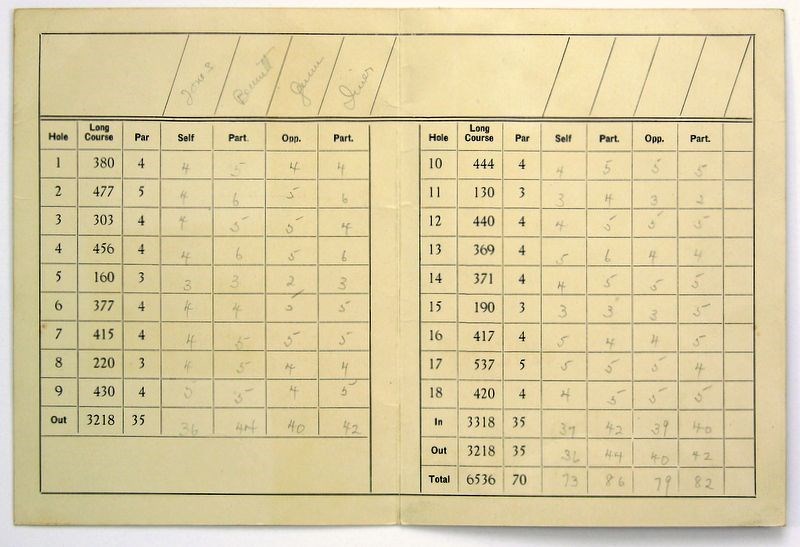 Jones Bennett Gunn Diner
Hole Long Course Par Self Part. Opp. Part.
1 380 4 4 5 4 4
2 477 5 4 6 5 6
3 303 4 4 5 5 4
4 456 4 4 6 5 6
5 160 3 3 3 2 3
6 377 4 4 4 5 5
7 415 4 4 5 5 5
8 220 3 4 5 4 4
9 430 4 5 5 4 5
Out 3218 35 36 44 40 42
Hole Long Course Par Self Part. Opp. Part.
10 444 4 4 5 5 5
11 130 3 3 4 3 2
12 440 4 4 5 5 5
13 369 4 5 6 4 4
14 371 4 4 5 5 5
15 190 3 3 3 3 5
16 417 4 5 4 4 5
17 537 5 5 5 5 4
18 420 4 4 5 5 5
In 3318 35 37 42 39 40
Out 3218 35 36 44 40 42
Total 6536 70 73 86 79 82